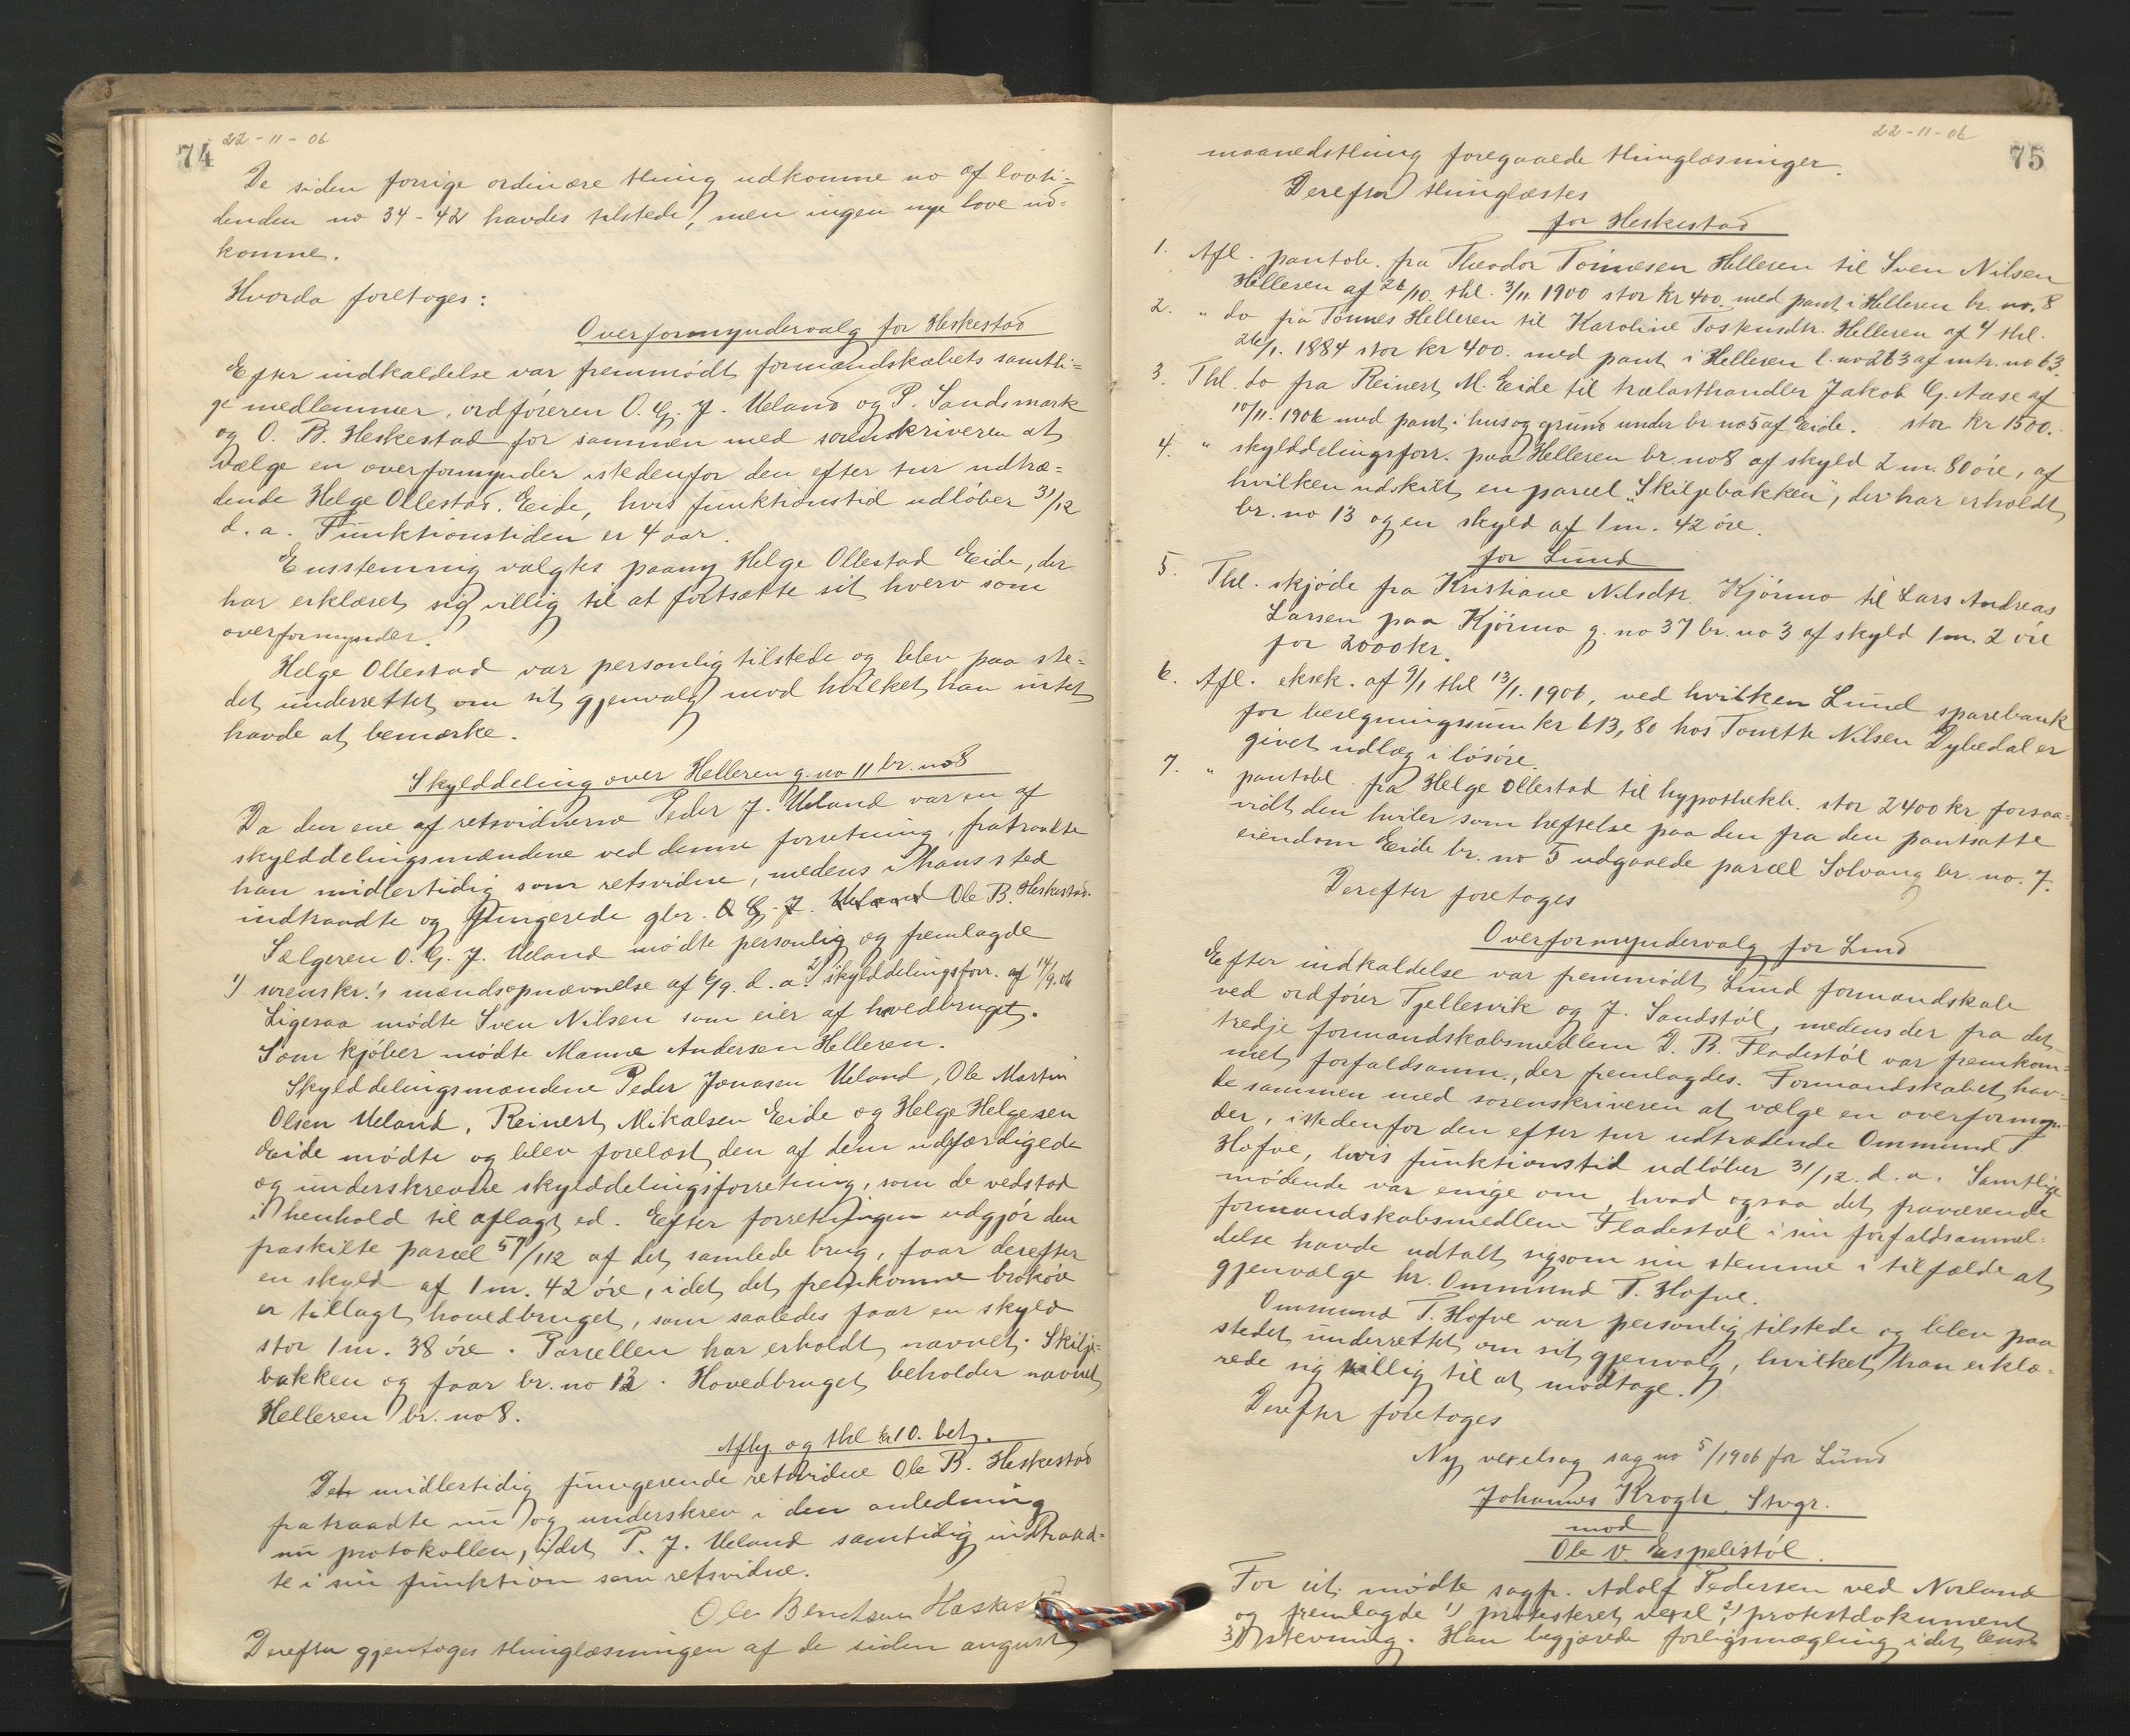 74 22-11-06
De siden forrige ordinære thing udkomne no af lovti=
denden no 34-42 havdes tilstede, men ingen nye love ud=
komne.
Hvorda foretoges:
Overformyndervalg for Heskestad
Efter indkaldelse var fremmødt formandskabets samtli=
ge medlemmer, ordføreren O. G. J. Ueland og P. Sandsmark
og O. B. Heskestad for sammen med sorenskriveren at
vælge en overformynder istedenfor den efter tur udtræ=
dende Helge Ollestad Eide, hvis funktionstid udløber 31/12
d. a. Funktionstiden er 4 aar.
Enstemmig valgtes paany Helge Ollestad Eide, der
har erklæret sig villig til at fortsætte sit hverv som
overformynder.
Helge Ollestad var personlig tilstede og blev paa ste=
det underrettet om sit gjenvalg mod hvilket han intet
havde at bemærke.
Skylddeling over Helleren g. no 11 br. no 8
Da den ene af retsvidnerne Peder J. Ueland var en af
skylddelingsmændene ved denne forretning, fratraadte
han midlertidig som retsvidne, medens i hans sted
indtraadte og fungerede gbr. O G. J. Ueland Ole B. Heskestad.
Sælgeren O. G. J. Ueland mødte personlig og fremlagde
1) sorenskr.'s mandsopnævnelse af 6/9. d. a. 2) skylddelingsforr. af 14/9. 06
Ligesaa mødte Sven Nilsen som eier af hovedbruget.
Som kjøber mødte Manne Andersen Helleren.
Skylddelingsmændene Peder Jonasen Ueland, Ole Martin
Olsen Ueland, Reinert Mikalsen Eide og Helge Helgesen
Eide mødte og blev forelæst den af dem udfærdigede
og underskrevne skylddelingsforretning, som de vedstod
i henhold til aflagt ed. Efter forretningen udgjør den
fraskilte parcel 57/112 af det samlede brug, faar derefter
en skyld af 1 m. 42 øre, idet det fremkomne brøkøre
er tillagt hovedbruget, som saaledes faar en skyld
stor 1 m. 38 øre. Parcellen har erholdt navnet Skilje=
bakken og faar br. no 13. Hovedbruget beholder navnet
Helleren br. no 8.
Afhj. og thl kr 10. bet.
Den midlertidig fungerende retsvidne Ole B. Heskestad
fratraadte nu og underskrev i den anledning
nu protokollen, idet P. J. Ueland samtidig indtraad=
te i sin funktion som retsvidne.
Ole Berntsen Heskestad
Derefter gjentoges thinglæsningen af de siden august
22-11-06 75
maanedsthing foregaaede thinglæsninger.
Derefter thinglæstes
for Heskestad
1. Afl. pantob. fra Theodor Tønnesen Helleren til Sven Nilsen
Helleren af 26/10. thl. 3/11. 1900 stor kr 400 med pant i Helleren br. no. 8
2. " do fra Tønnes Helleren til Karoline Toskusdtr. Helleren af 4 thl.
26/1. 1884 stor kr 400. med pant i Helleren l. no 263 af mtr. no 63.
3. Thl. do fra Reinert M. Eide til trælasthandler Jakob G. Aase af
10/11. 1906 med pant i hus og grund under br. no 5 af Eide. stor kr 1500.
4. " skylddelingsforr. paa Helleren br. no 8 af skyld 2 m. 80 øre, af
hvilken udskilt en parcel "Skiljebakken", der har erholdt
br. no 13 og en skyld af 1 m. 42 øre.
for Lund
5. Thl. skjøde fra Kristiane Nilsdtr. Kjørmo til Lars Andreas
Larsen paa Kjørmo g. no 37 br. no 3 af skyld 1 m. 2 øre
for 2000 kr.
6. Afl. eksek. af 9/1 thl 13/1. 1906, ved hvilken Lund sparebank
for beregningssum kr 613,80 hos Tomth Nilsen Dybedal er
givet udlæg i løsøre.
7. " pantobl. fra Helge Ollestad til hypothekb. stor 2400 kr forsaa=
vidt den hviler som heftelse paa den fra den pantsatte
eiendom Eide br. no 5 udgaaede parcel Solvang br. no. 7.
Derefter foretoges
Overformyndervalg for Lund
Efter indkaldelse var fremmødt Lund formandskab
ved ordfører Tjellesvik og J. Sandstøl, medens der fra det
tredje formandskabsmedlem D. B. Fladestøl var fremkom=
met forfaldsanm., der fremlagdes. Formandskabet hav=
de sammen med sorenskriveren at vælge en overformyn=
der, istedenfor den efter tur udtrædende Ommund T.
Hofve, hvis funktionstid udløber 31/12. d. a. Samtlige
mødende var enige om, hvad ogsaa det fraværende
formandskabsmedlem Fladestøl i sin forfaldsanmel=
delse havde udtalt sig som sin stemme i tilfælde at
gjenvælge hr. Ommund T. Hofve.
Ommund T. Hofve var personlig tilstede og blev paa
stedet underrettet om sit gjenvalg, hvilket han erklæ=
rede sig villig til at modtage.
Derefter foretoges
Ny vexelsag sag no 5/1906 for Lund
Johannes Krogh, Stvgr.
mod
Ole V. Espelistøl.
For cit. mødte sagf. Adolf Pedersen ved Norland
og fremlagde 1) protesteret vexel, 2) protestdokument
3) stevning. Han begjærede forligsmægling, idet